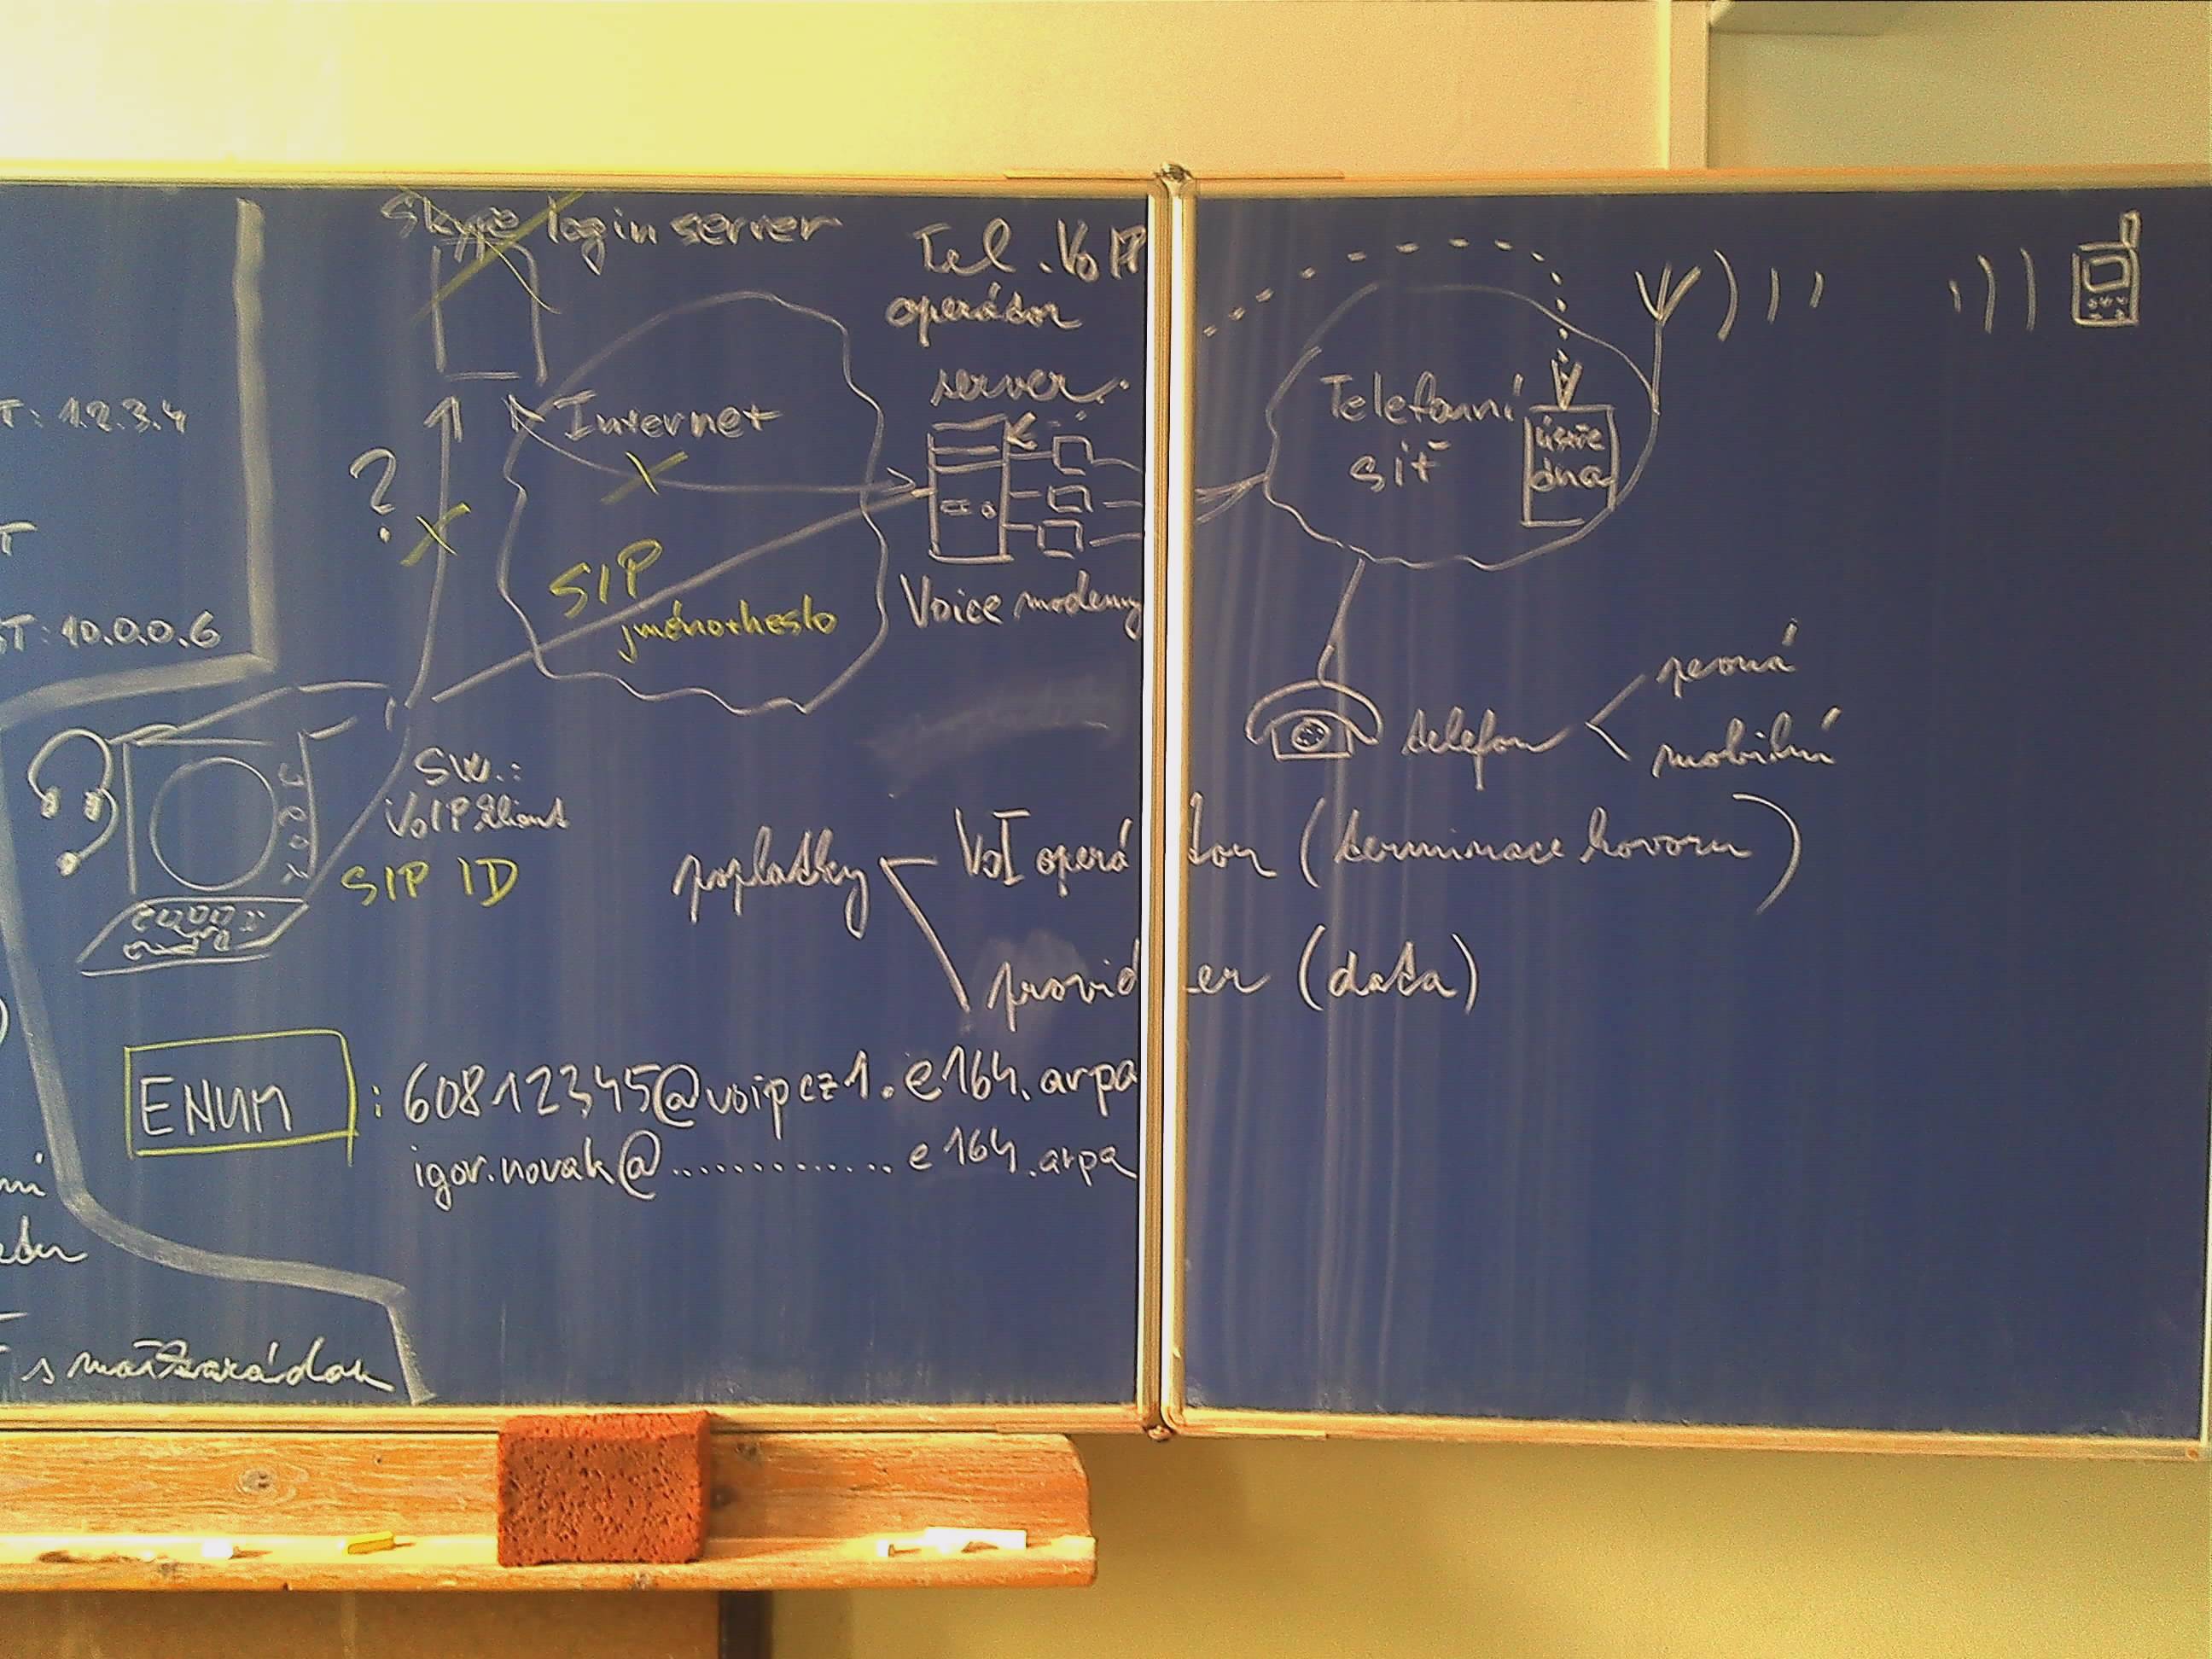 Skype login server
Tel. VoIP
operátor
server
T: 1.2.3.4
Internet
Telefonní
síť
ústře
dna
?
T
SIP
jméno+heslo
Voice modemy
T: 10.0.0.6
pevná
telefon
mobilní
SW.:
VoIP klient
SIP ID
poplatky
VoI operátor (terminace hovoru)
provider (data)
ENUM : 60812345@voipcz1.e164.arpa
igor.novak@.............e164.arpa
ní